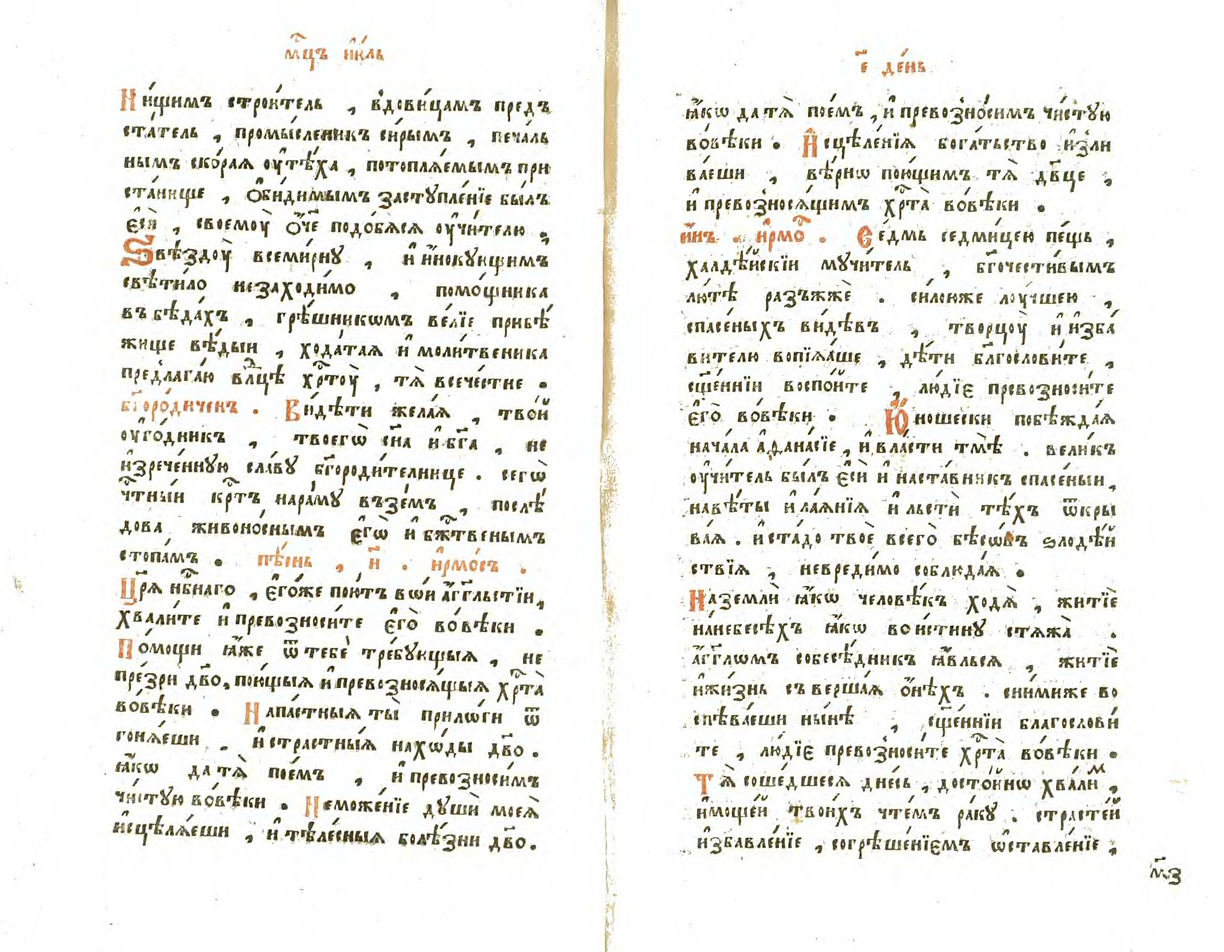 мц҃ъ і҆ю́ль
Ни́щимъ строи́тель , вдови́цамъ предъ
ста́тель , промы́сленикъ си́рымъ , печаль
нымъ ско́рая ᲂу҆тѣ́ха , потопля́емымъ при
ста́нище , ѻ҆би́димымъ заступле́нїе бы́лъ
є҆сѝ , своемꙋ̀ ѻ҆́ч҃е подо́бяся ᲂу҆чи́телю ,
Ѕвѣздꙋ̀ всеми́рнꙋ , и҆ и҆́нокꙋющимъ
свѣти́ло незаходи́мо , помо́щника
въ бѣда́хъ , грѣ́шникѡмъ ве́лїе прибѣ́
жище вѣ́дыи , хода́тая и҆ моли́твеника
предлага́ю влⷣцѣ хрⷭ҇тꙋ̀ , тѧ̀ всече́стне .
бг҃оро́диченъ . Ви́дѣти жела́я , тво́й
ᲂу҆го́дникъ , твоегѡ̀ сн҃а и҆ бг҃а , не
и҆зрече́ннꙋю сла́вꙋ бг҃ороди́телнице . сегѡ̀
чⷭ҇тны́й крⷭ҇тъ на ра́мꙋ взе́мъ , послѣ́
дова живоно́снымъ є҆гѡ̀ и҆ бж҃твенымъ
стопа́мъ . пѣ́снь , и҃ . і҆рмо́съ .
Цр҃я нбⷭ҇наго , є҆го́же пою́тъ во́и а҆́гг҃льстїи,
хвали́те и҆ превозноси́те є҆го̀ во́вѣки .
По́мощи ꙗ҆́же ѿ тебѐ тре́бꙋющыя , не
пре́зри дв҃о, пою́щыя и҆ превознося́щыя хрⷭ҇та̀
во́вѣки . Напа́стныя ты̀ прило́ги ѿ
гоня́еши , и҆ стра́стныя нахо́ды дв҃о .
ꙗ҆́кѡ да тѧ̀ пое́мъ , и҆ превозно́симъ
чи́стꙋю во́вѣки . Неможе́нїе дꙋшѝ моея̀
и҆сцѣля́еши , и҆ тѣле́сныя болѣ́зни дв҃о.
є҃ де́нь
ꙗ҆́кѡ да тѧ̀ пое́мъ , и҆ превозно́симъ чи́стꙋю
во́вѣки . И҆сцѣле́нїя бога́тьство и҆злѝ
ва́еши , вѣ́рнѡ пою́щимъ тѧ̀ дв҃це ,
и҆ превознося́щимъ хрⷭ҇та̀ во́вѣки .
и҆́нъ . і҆рмо́с . Се́дмь седми́цею пе́щь ,
халдѣ́йскїи мꙋчи́тель , бг҃очести́вымъ
лю́тѣ разъжжѐ . си́лоюже лꙋ́чшею ,
спасе́ныхъ ви́дѣвъ , творцꙋ̀ и҆ и҆зба́
вителю вопїя́ше , дѣ́ти бл҃гослови́те ,
сщ҃е́ннїи воспо́йте , лю́дїе превозноси́те
є҆го̀ во́вѣки . Ю҆́ношески побѣжда́я
нача́ла а҆ѳана́сїе , и҆ вла́сти тмѣ̀ . вели́къ
ᲂу҆чи́тель бы́лъ є҆сѝ и҆ наста́вникъ спасе́ныи,
навѣ́ты и҆ лая́нїя и҆ льстѝ тѣ́хъ ѿкры
ва́я . и҆ ста́до твоѐ всего̀ бѣсѡ́въ ѕлодѣ́й
ствїя , невреди́мо соблюда́я .
На землѝ ꙗ҆́кѡ человѣ́къ ходя̀ , житїѐ
на небесѣ́хъ ꙗ҆́кѡ вои́стинꙋ стяжа̀ .
а҆́гг҃лѡмъ собесѣ́дникъ ꙗ҆ви́лься , житїѐ
и҆ жи́знь съверша́я ѻ҆́нѣхъ . сни́миже во
спѣва́еши ны́нѣ , сщ҃е́ннїи благословѝ
те , лю́дїе превозноси́те хрⷭ҇та̀ во́вѣки .
Тѧ̀ соше́дшеся дне́сь , досто́йнѡ хва́лимъ ,
и҆ моще́й твои́хъ чте́мъ ра́кꙋ . страсте́й
и҆збавле́нїе , согрѣше́нїємъ ѡ҆ставле́нїе ,
м҃з